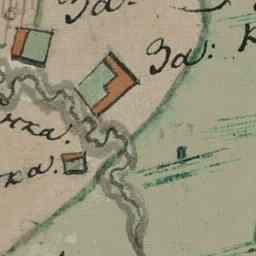 За:
За: к
нка.
ка.